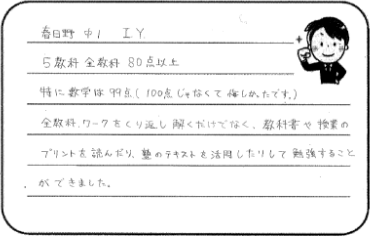 春日野 中1 I.Y.
5教科 全教科 80点以上
特に数学は99点(100点じゃなくて悔しかったです。)
全教科、ワークをくり返し解くだけでなく、教科書や授業の
プリントを読んだり、塾のテキストを活用したりして勉強すること
ができました。